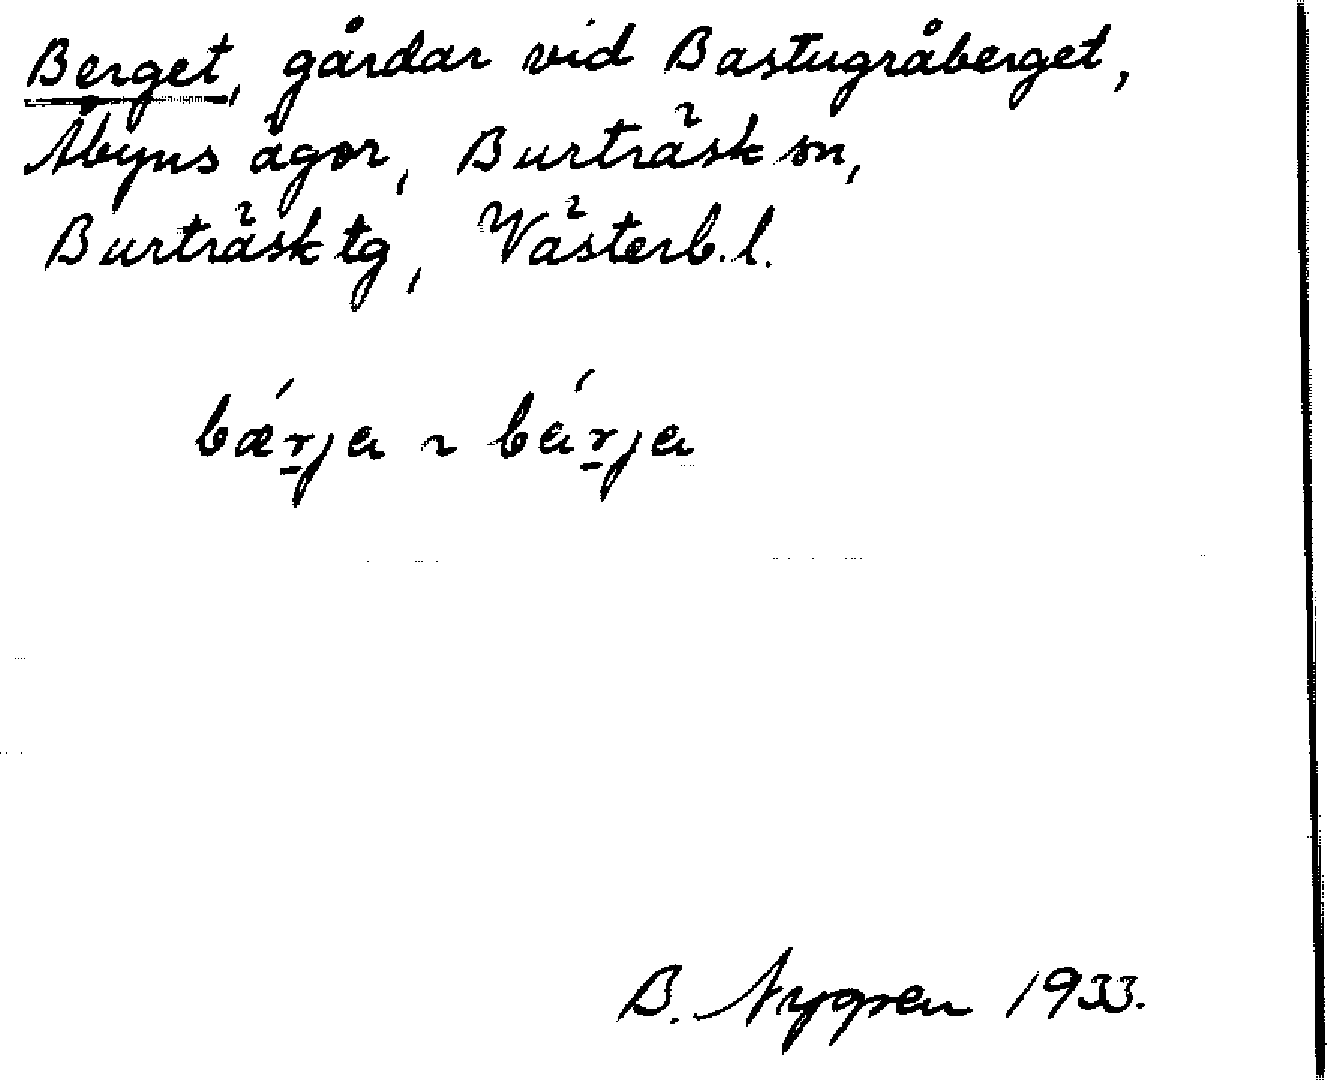 Berget, gårdar vid Bastugråberget,
Åbyns ägor, Burträsk sn,
Burträsk tg, Västerb. l.
bǽr̲ja ~ bár̲ja
B. Nygren 1933.